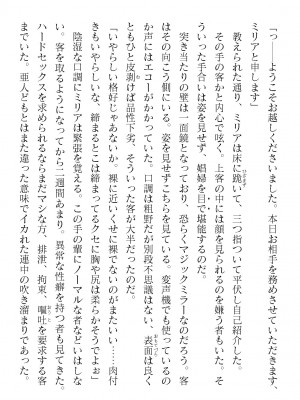 「っ――ようこそお越しくださいました。本日お相手を務めさせていただきます、
ミリアと申します」
教えられた通り、ミリアは床に跪いて、三つ指ついて平伏し自己紹介した。
その手の客かと内心で呟く。上客の中には顔を見られるのを嫌う者もいた。そ
ういった手合いは姿を見せず、娼婦を目で堪能するのだ。
突き当たりの壁は一面鏡となっており、恐らくマジックミラーなのだろう。客
はその向こう側にいる。姿を見せずこちらを見ている。変声機でも使っているの
か声にはエコーがかかっていた。口調は粗野だが別段不思議はない。表面は良く
ともひと皮剥けば品性下劣、そういった客が大半だったのだ。
「いやらしい格好じゃあないか。裸に近いくせに裸でないのがまたいい……肉付
きもいやらしいな、締まるとこは締まってるクセに胸や尻は柔らかそうでよぉ」
陰湿な口調にミリアは緊張を覚える。この手の輩にノーマルな者などいはしな
い。客を取るようになってから一週間あまり。異常な性癖を持つ者も見てきた。
ハードセックスを求められるならまだマシな方、排泄、拘束、嘔吐を要求する客
までいた。亜人どもとはまた違った意味でイカれた連中の吹き溜まりであった。